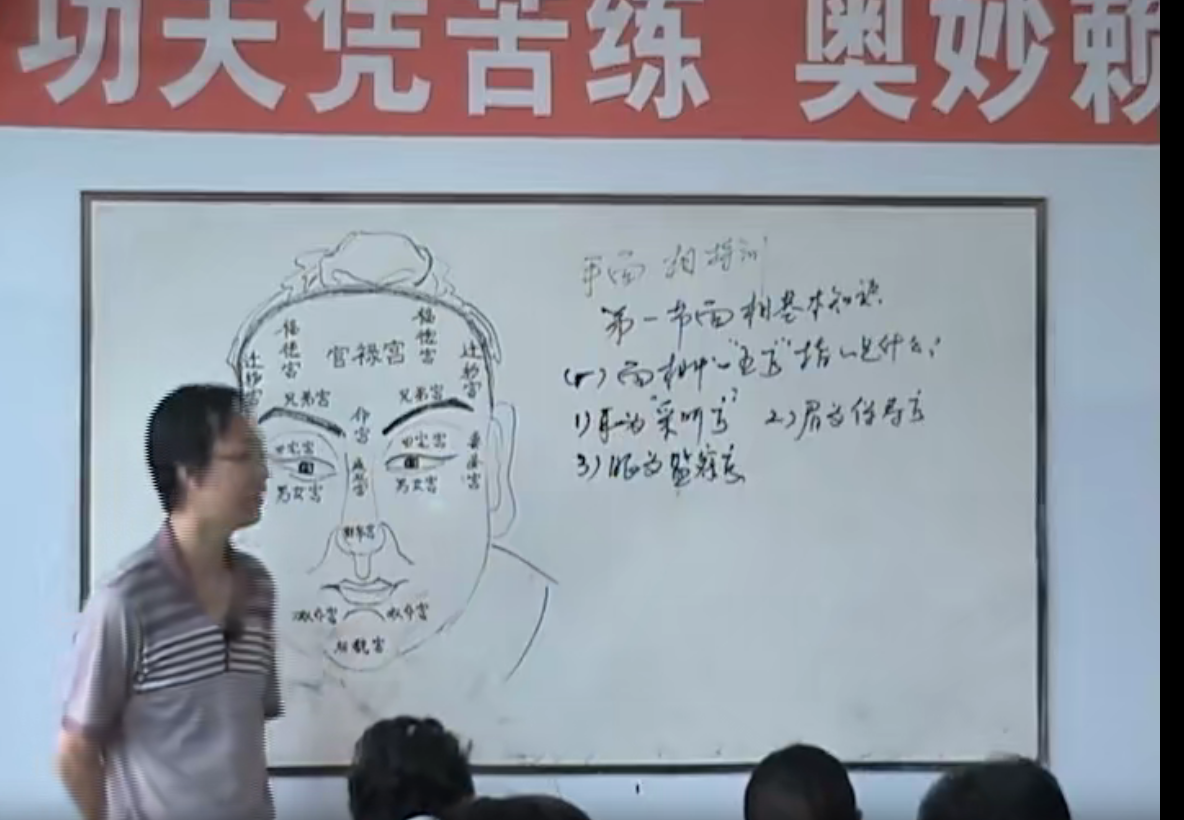 功夫凭苦练 奥妙赖
面相培训
第一节面相基本知识
面相中"五官"指的是什么?
1)耳为"采听官" 2)眉为保寿官
3)眼为监察官
福德宫
福德宫
官禄宫
迁移宫
迁移宫
兄弟宫
兄弟宫
命宫
田宅宫
田宅宫
男女宫
男女宫
财帛宫
奴仆宫
奴仆宫
相貌宫